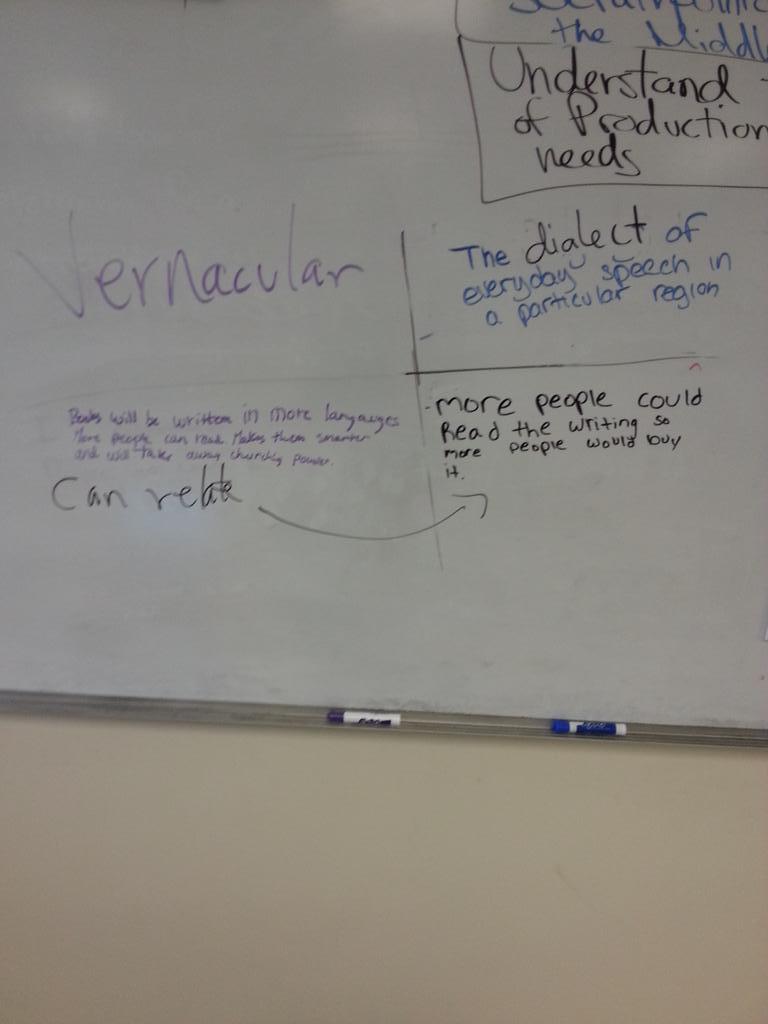 the Middl
Understand
of Production
needs
Vernacular
The dialect of
everyday speech in
a particular region
Books will be written in more langauges
More people can read. Makes them smarter
and will take away churchs power.
Can relate
-more people could
Read the writing so
more people would buy
it.